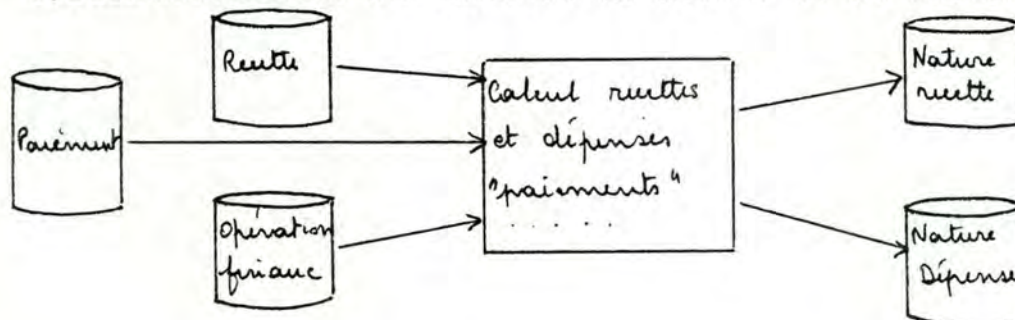 Recette
Paiément
Opération
financ
Calcul recettes
et dépenses
"paiements"
. . . . .
Nature
recette
Nature
Dépense